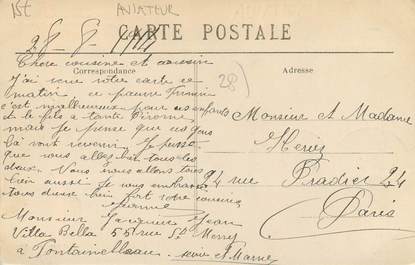 15€
AVIATEUR
CARTE POSTALE
28-8-1914
Chère cousine et cousin
Correspondance
Adresse
J'ai reçu votre carte ce
matin, ce pauvre Firmin
c'est malheureux pour ses enfants
et le fils a tante
mais je pense que ces gens
là vont revenir. Je pense
que vous allez bien tous les
deux. Nous nous allons tous
bien aussi. Je vous embrasse
tous deux bien fort votre cousine
28)
Monsieur et Madame
24 rue Pradier 24
Paris
Monsieur Jacquin Jean
Villa Bella 55 rue St Merry
à Fontainebleau. Seine et Marne